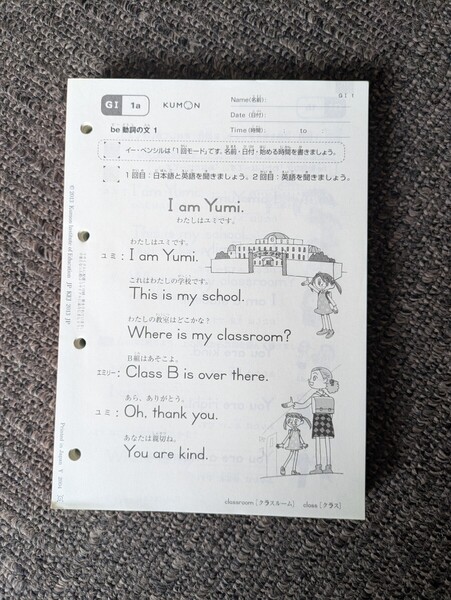 GI 1
GI 1a KUMON Name(名前)
Date (日付)
be 動詞の文 1 Time (時間) to
イー・ペンシルは「1回モード」です。名前・日付・始める時間を書きましょう。
1回目:日本語と英語を聞きましょう。2回目:英語を聞きましょう。
I am Yumi.
わたしはユミです。
わたしはユミです。
ユミ : I am Yumi.
これはわたしの学校です。
This is my school.
わたしの教室はどこかな?
Where is my classroom?
B組はあそこよ。
エミリー : Class B is over there.
あら、ありがとう。
ユミ : Oh, thank you.
あなたは親切ね。
You are kind.
classroom [クラスルーム] class [クラス]
© 2012 Kumon Institute of Education JP
Printed in Japan